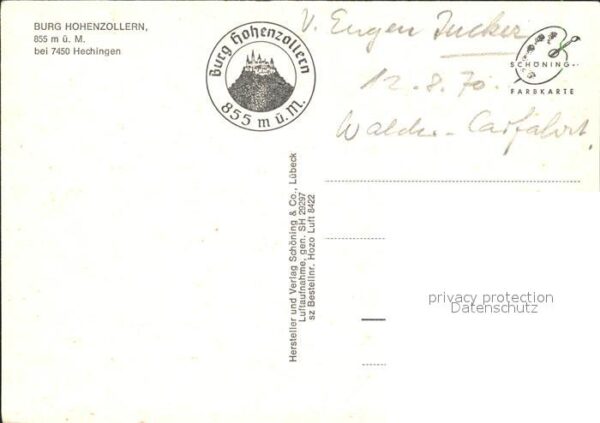 BURG HOHENZOLLERN,
855 m ü. M.
bei 7450 Hechingen
Burg Hohenzollern
855 m ü. M.
V. Eugen Zucker
12.8.70.
SCHÖNING
FARBKARTE
Hersteller und Verlag Schöning & Co., Lübeck
Luftaufnahme, gen. SH 29297
sz Bestellnr. Hozo Luft 8422
privacy protection
Datenschutz